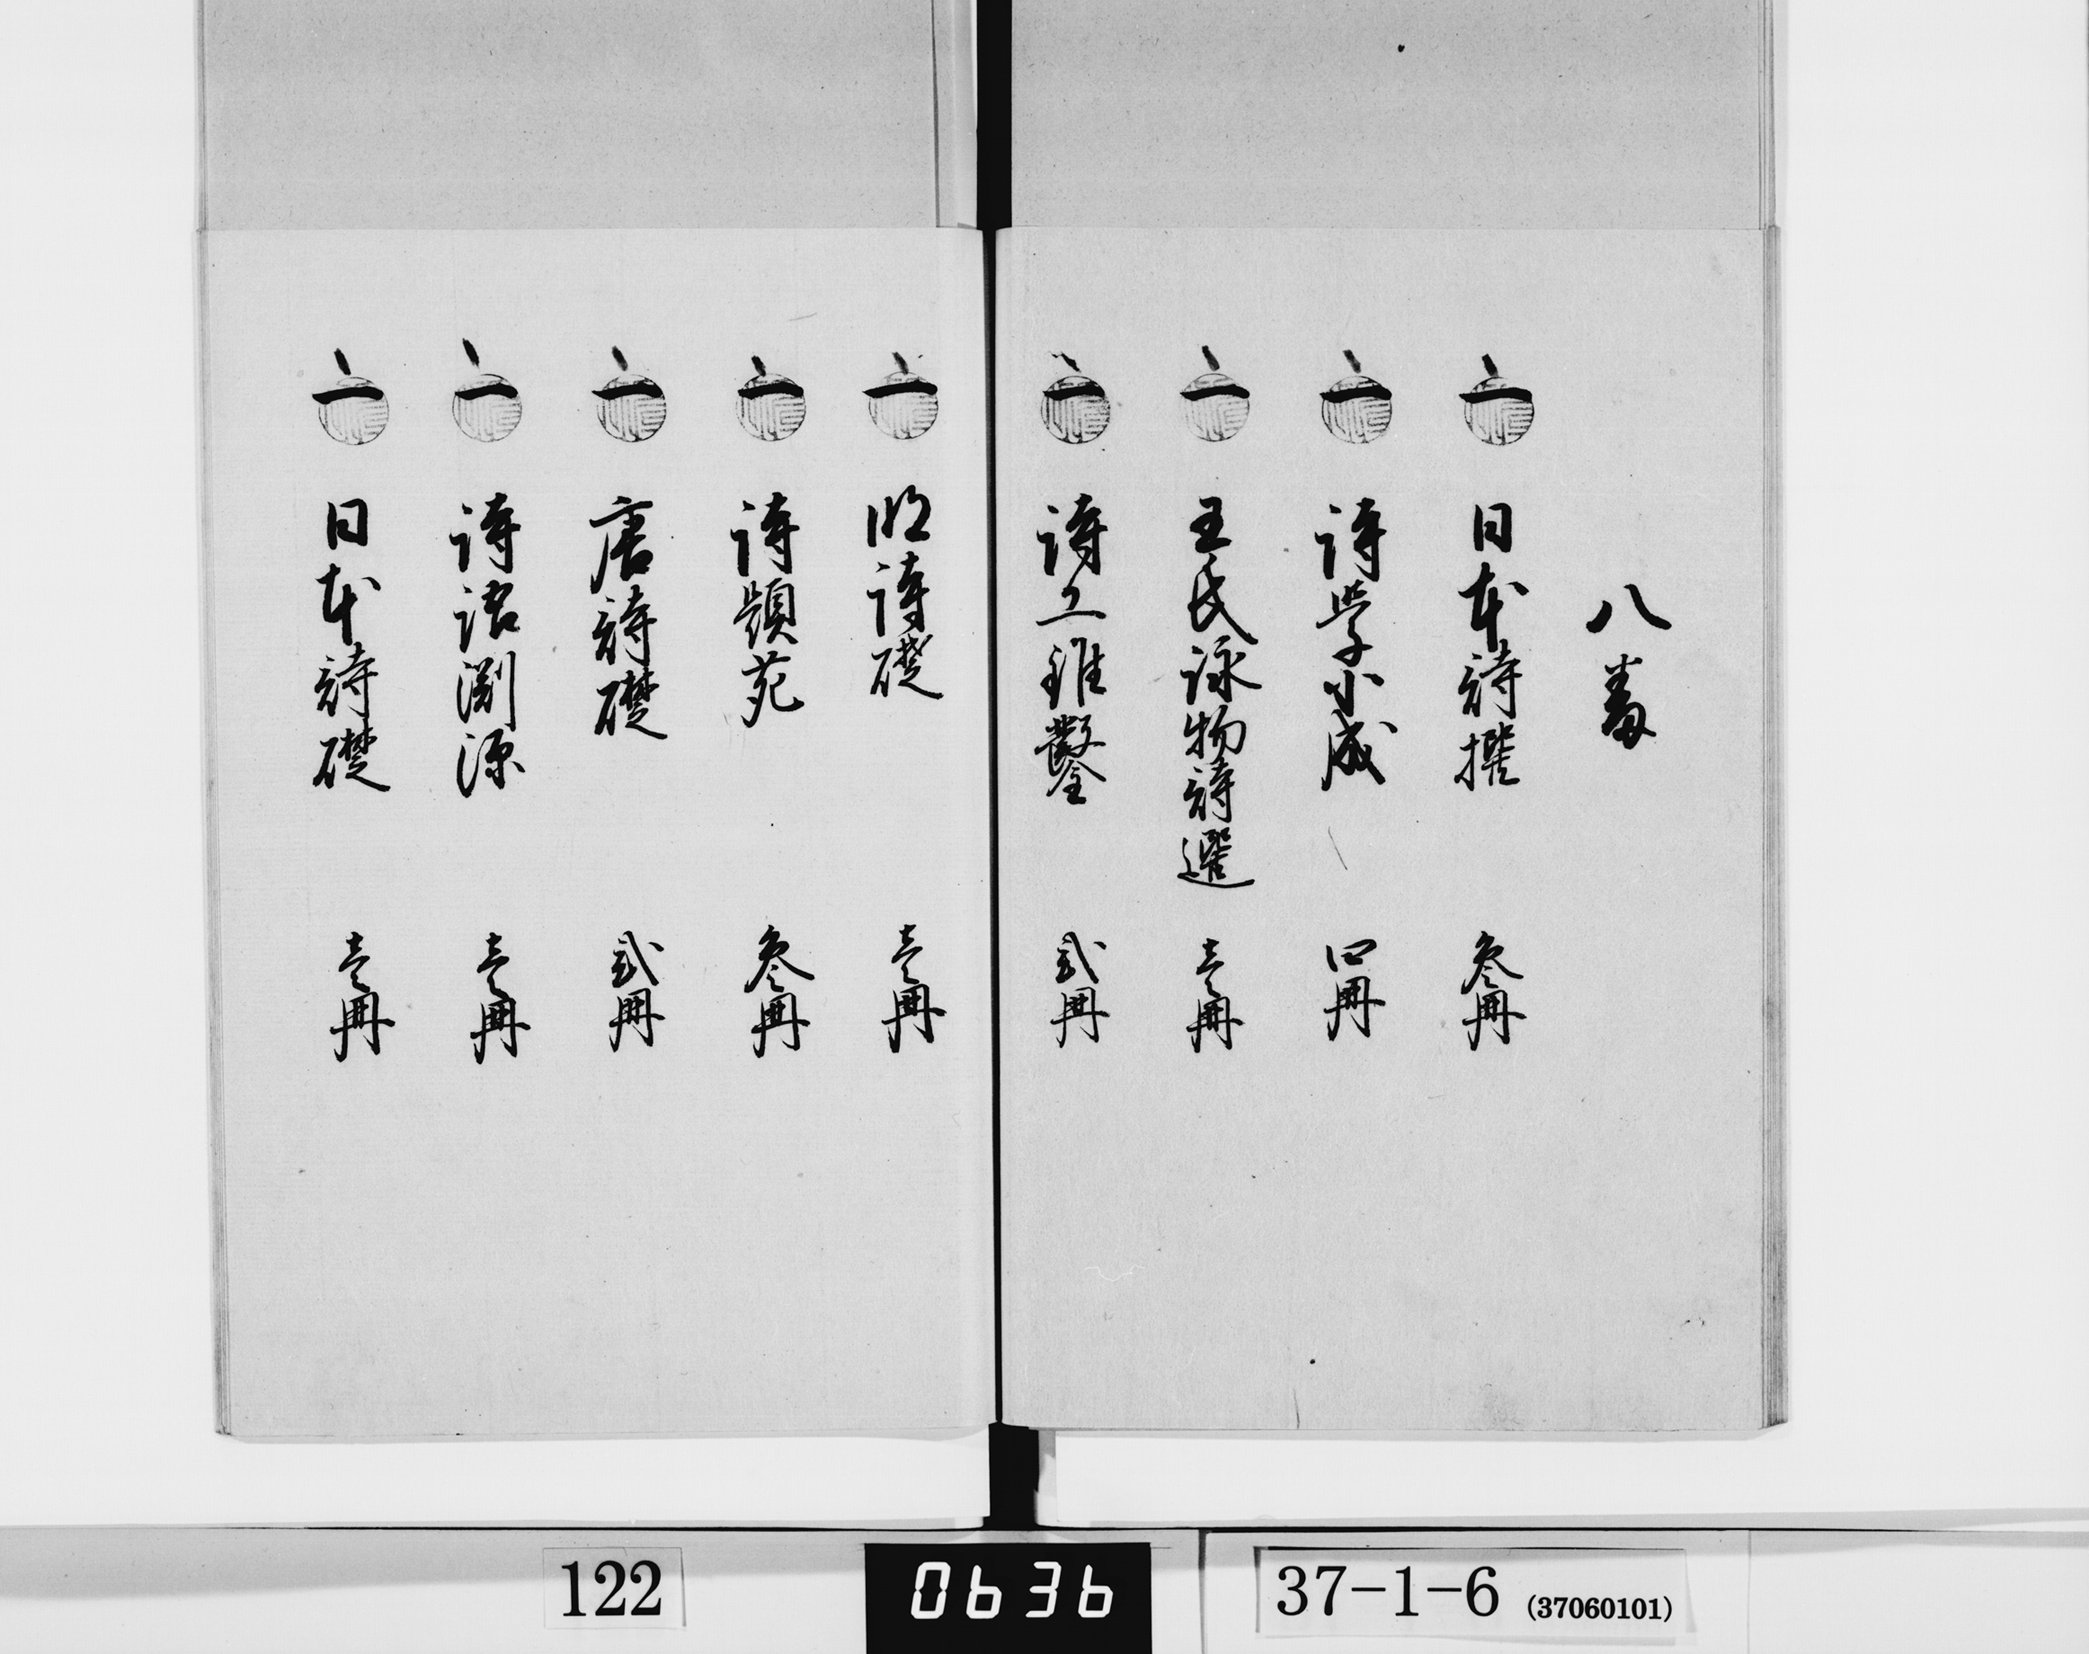 八番
一 日本詩撰 叁冊
一 詩学小成 四冊
一 王氏詠物詩選 壱冊
一 詩工錐鑿 弐冊
一 明詩礎 壱冊
一 詩題苑 叁冊
一 唐詩礎 弐冊
一 詩語淵源 壱冊
一 日本詩礎 壱冊
122
0636
37-1-6 (37060101)